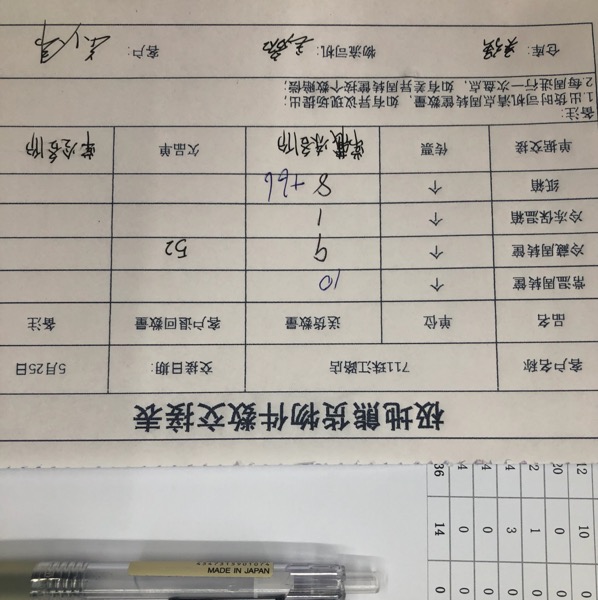 极地熊货物件数交接表
客户名称 711珠江路店 交接日期: 5月25日
品名 单位 送货数量 客户退回数量 备注
常温周转筐 个 10
冷藏周转筐 个 9 52
冷冻保温箱 个 1
纸箱 个 8+66
单据交接 传票 欠品单
备注:
1.出货时司机清点周转筐数量，如有异议现场提出;
2.每周进行一次盘点，如有差异周转筐按个数赔偿;
仓库: 物流司机: 客户:
12 20 2 4 4 4 36
10 0 1 3 0 0 14
0 0 0 0 0 0
MADE IN JAPAN